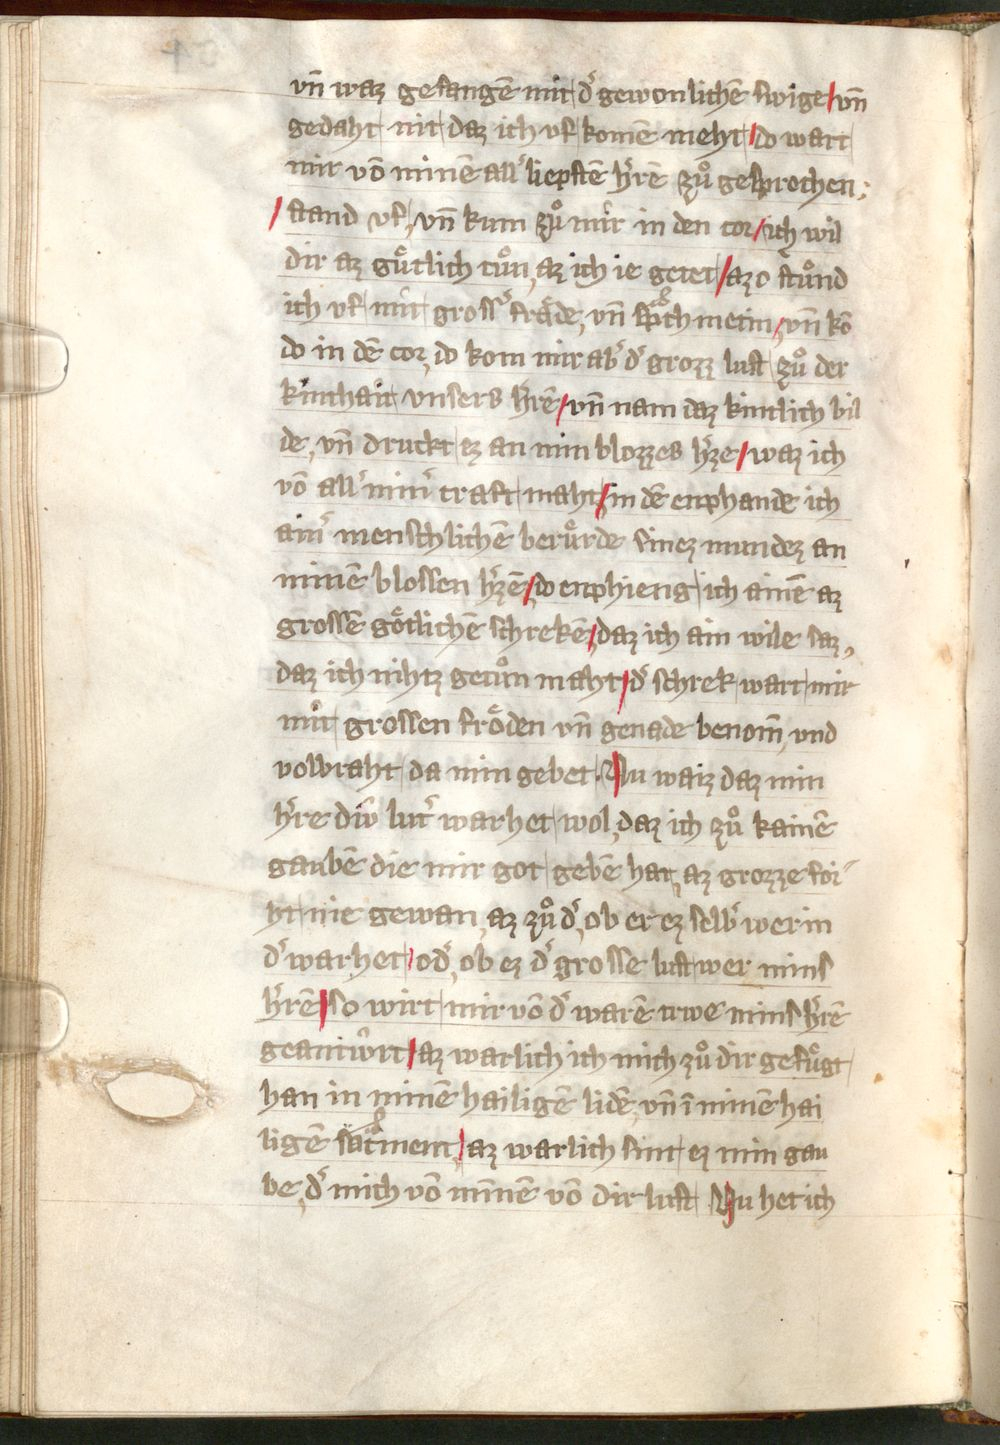 vn̄ waz gefangē mit dˀ gewonlichē swige / vn̄
gedaht nit daz ich vf komē meht / do wart
mir vō minē allˀ liepstē hˀrē zuͦ gesprochen.
/ stand vf, vn̄ kum zuͦ mir in den cor / ich wil
dir az guͤtlich tuͦn, az ich ie getet / azo stuͦnd
ich vf mit grossˀ fraͤde, vn̄ metin, vn̄ kō
do in dē cor, do kom mir abˀ dˀ grozz lust zuͦ der
kinthait vnsers hˀrē / vn̄ nam daz kintlich bil
de, vn̄ druckt ez an min blozzes hˀze / waz ich
vō allˀ minˀ craft maht / in dē enphande ich
ainˀ menschlichē beruͤrde sinez mundez an
minē blossen hˀzē / do enphieng ich ainē az
grossē goͤtlichē schrekē / daz ich ain wile saz,
daz ich nihtz getuͦn maht / dˀ schrek wart mir
mit grossen froͤden vn̄ genade benom̄, vnd
volbraht da min gebet. Nu waiz daz min
hˀre diw̄ lutˀ warhet wol, daz ich zuͦ kainē
gaubē die mir got gebē hat, az grozze for
ht nie gewan, az zuͦ dˀ, ob er ez selbˀ wer in
dˀ warhet / odˀ, ob ez dˀ grosse lust wer mins
hˀrē / so wirt mir vō dˀ warē trwe mins hˀrē
geantwrt / az warlich ich mich zuͦ dir gefuͤgt
han in minē hailigē lidē, vn̄ ī minē hai
ligē sacˀment, / az warlich sint ez min gau
be, dˀ mich vō minnē vō dir lust Nu het ich